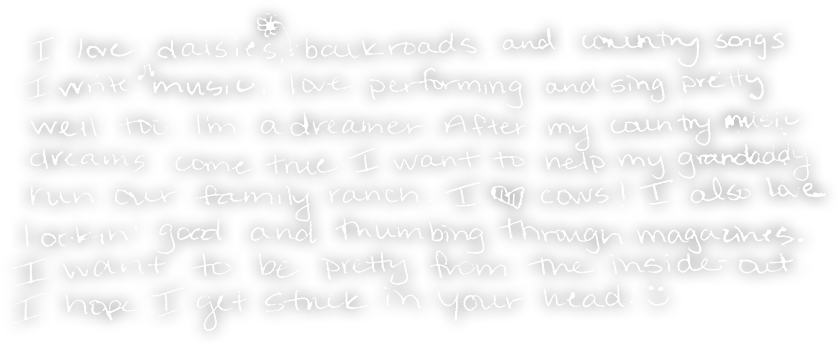 I love daisies, backroads and country songs
I write music, love performing and sing pretty
well too. I'm a dreamer After my country music
dreams come true I want to help my grandaddy
run our family ranch. I cows! I also love
lookin' good and thumbing through magazines.
I want to be pretty from the inside-out
I hope I get stuck in your head. :)